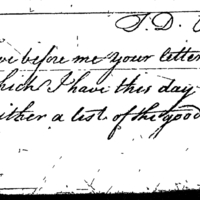 T. D.
ve before me your letter
which I have this day
either a list of the good